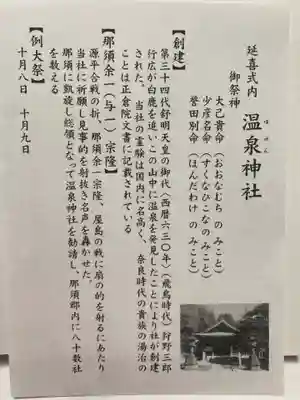 延喜式内 温泉神社
ゆ ぜん
御祭神
大己貴命（おおなむち の みこと）
少彦名命（すくなひこなの みこと）
誉田別命（ほんだわけ の みこと）
【創建】
第三十四代舒明天皇の御代（西暦六三〇年）（飛鳥時代）狩野三郎
行広が白鹿を追いこの山中に温泉を発見したことにより社が創建
された。当社の霊験は国内に名高く、奈良時代の貴族の湯治の
ことは正倉院文書に記載されている
【那須余一（与一）宗隆】
源平合戦の折、那須余一宗隆、屋島の戦に扇の的を射るにあたり
当社に祈願し見事的を射抜き名声を轟かせた。
那須に凱旋し総領となって温泉神社を勧請し、那須郡内に八十数社
を数える
【例大祭】
十月八日 十月九日